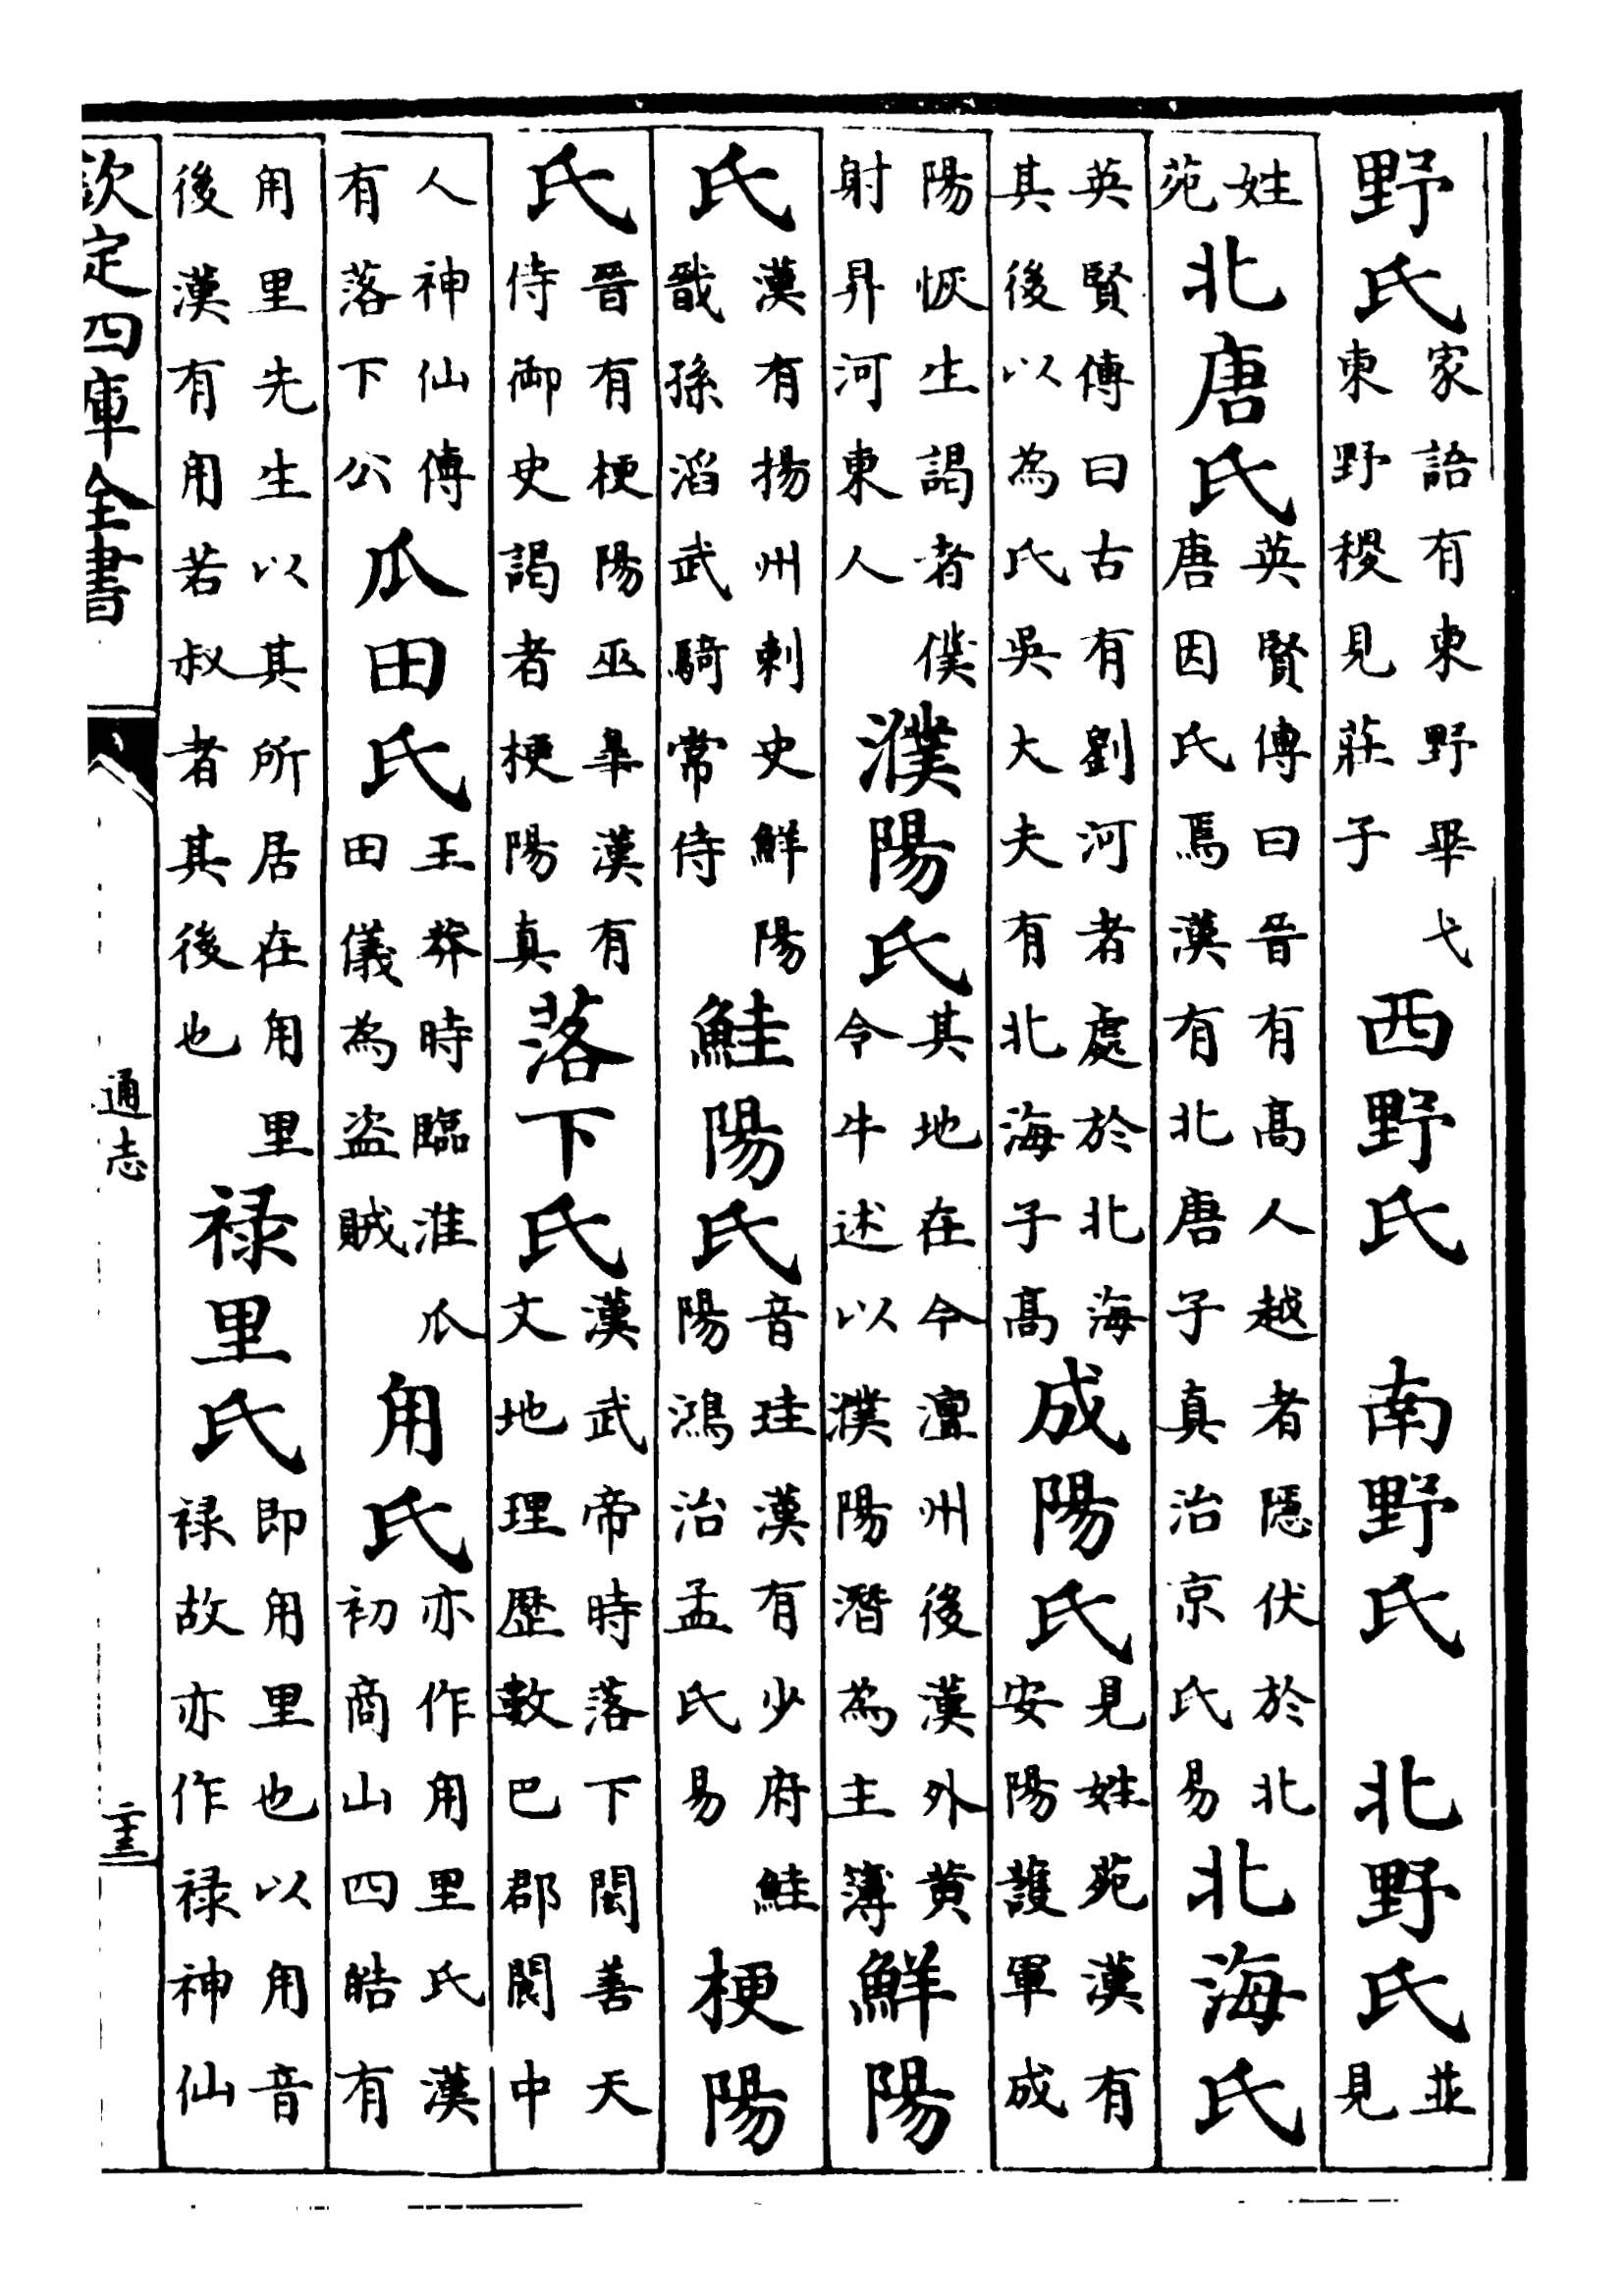 野氏家語有東野畢弋東野稷見莊子西野氏 南野氏 北野氏並見
姓苑北唐氏英賢傳曰晉有高人越者隱伏於北唐因氏焉漢有北唐子真治京氏易北海氏
英賢傳曰古有劉河者處於北海其後以為氏吳大夫有北海子高成陽氏見姓苑漢有安陽護軍成
陽恢生謁者僕射昇河東人濮陽氏其地在今澶州後漢外黄令牛述以濮陽潛為主簿鮮陽
氏漢有揚州刺史鮮陽戩孫滔武騎常侍鮭陽氏音珪漢有少府鮭陽鴻治孟氏易梗陽
氏晉有梗陽巫臯漢有侍御史謁者梗陽真落下氏漢武帝時落下閎善天文地理歴數巴郡閬中
人神仙傳有落下公瓜田氏王莽時臨淮瓜田儀為盗賊甪氏亦作甪里氏漢初商山四皓有
甪里先生以其所居在甪里後漢有甪若叔者其後也禄里氏即甪里也以甪音禄故亦作禄神仙
欽定四庫全書 通志 二十五